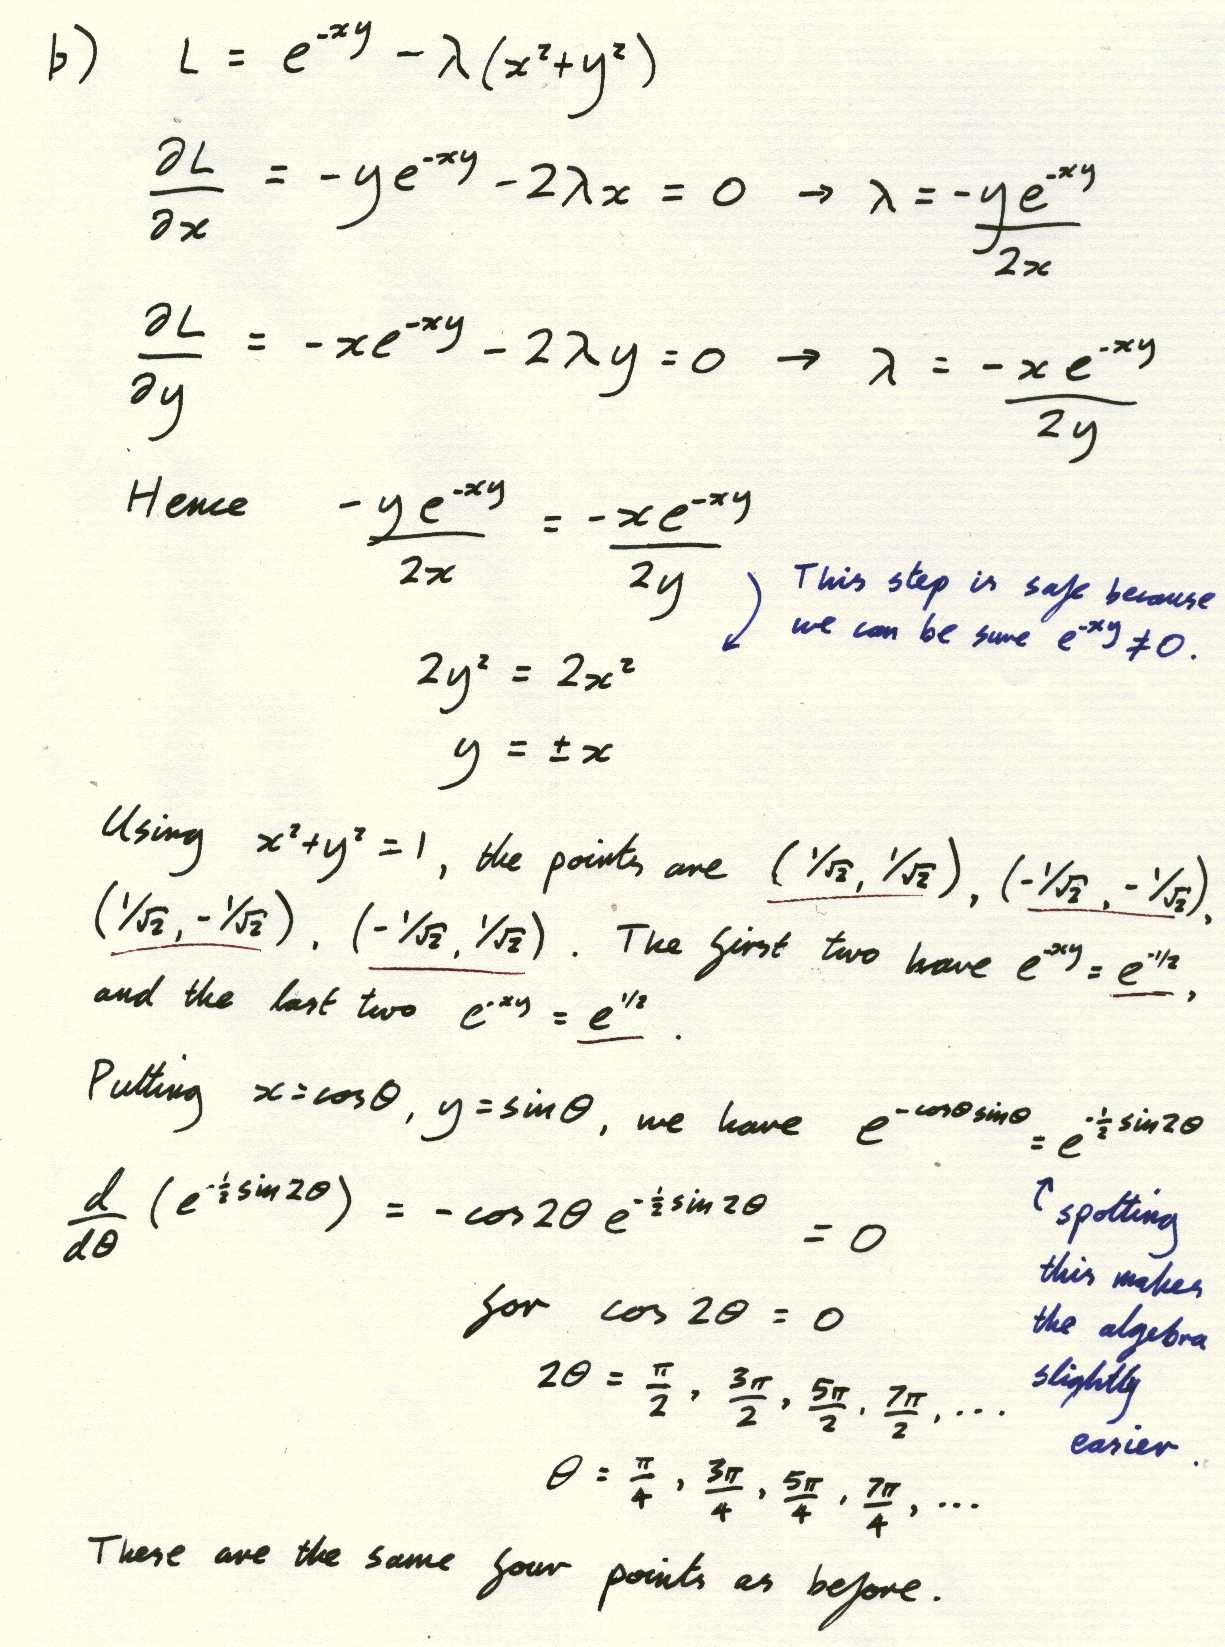 b) L = e^{-xy} - λ(x²+y²)
∂L/∂x = -ye^{-xy} - 2λx = 0 → λ = -ye^{-xy}/2x
∂L/∂y = -xe^{-xy} - 2λy = 0 → λ = -xe^{-xy}/2y
Hence -ye^{-xy}/2x = -xe^{-xy}/2y
This step is safe because
we can be sure e^{-xy} ≠ 0.
2y² = 2x²
y = ±x
Using x²+y² = 1, the points are (1/√2, 1/√2), (-1/√2, -1/√2),
(1/√2, -1/√2), (-1/√2, 1/√2). The first two have e^{-xy} = e^{-1/2},
and the last two e^{-xy} = e^{1/2}.
Putting x = cosθ, y = sinθ, we have e^{-cosθ sinθ} = e^{-½ sin2θ}
d/dθ (e^{-½ sin 2θ}) = -cos 2θ e^{-½ sin 2θ} = 0
↑ spotting
this makes
the algebra
slightly
easier.
for cos 2θ = 0
2θ = π/2, 3π/2, 5π/2, 7π/2, ...
θ = π/4, 3π/4, 5π/4, 7π/4, ...
These are the same four points as before.